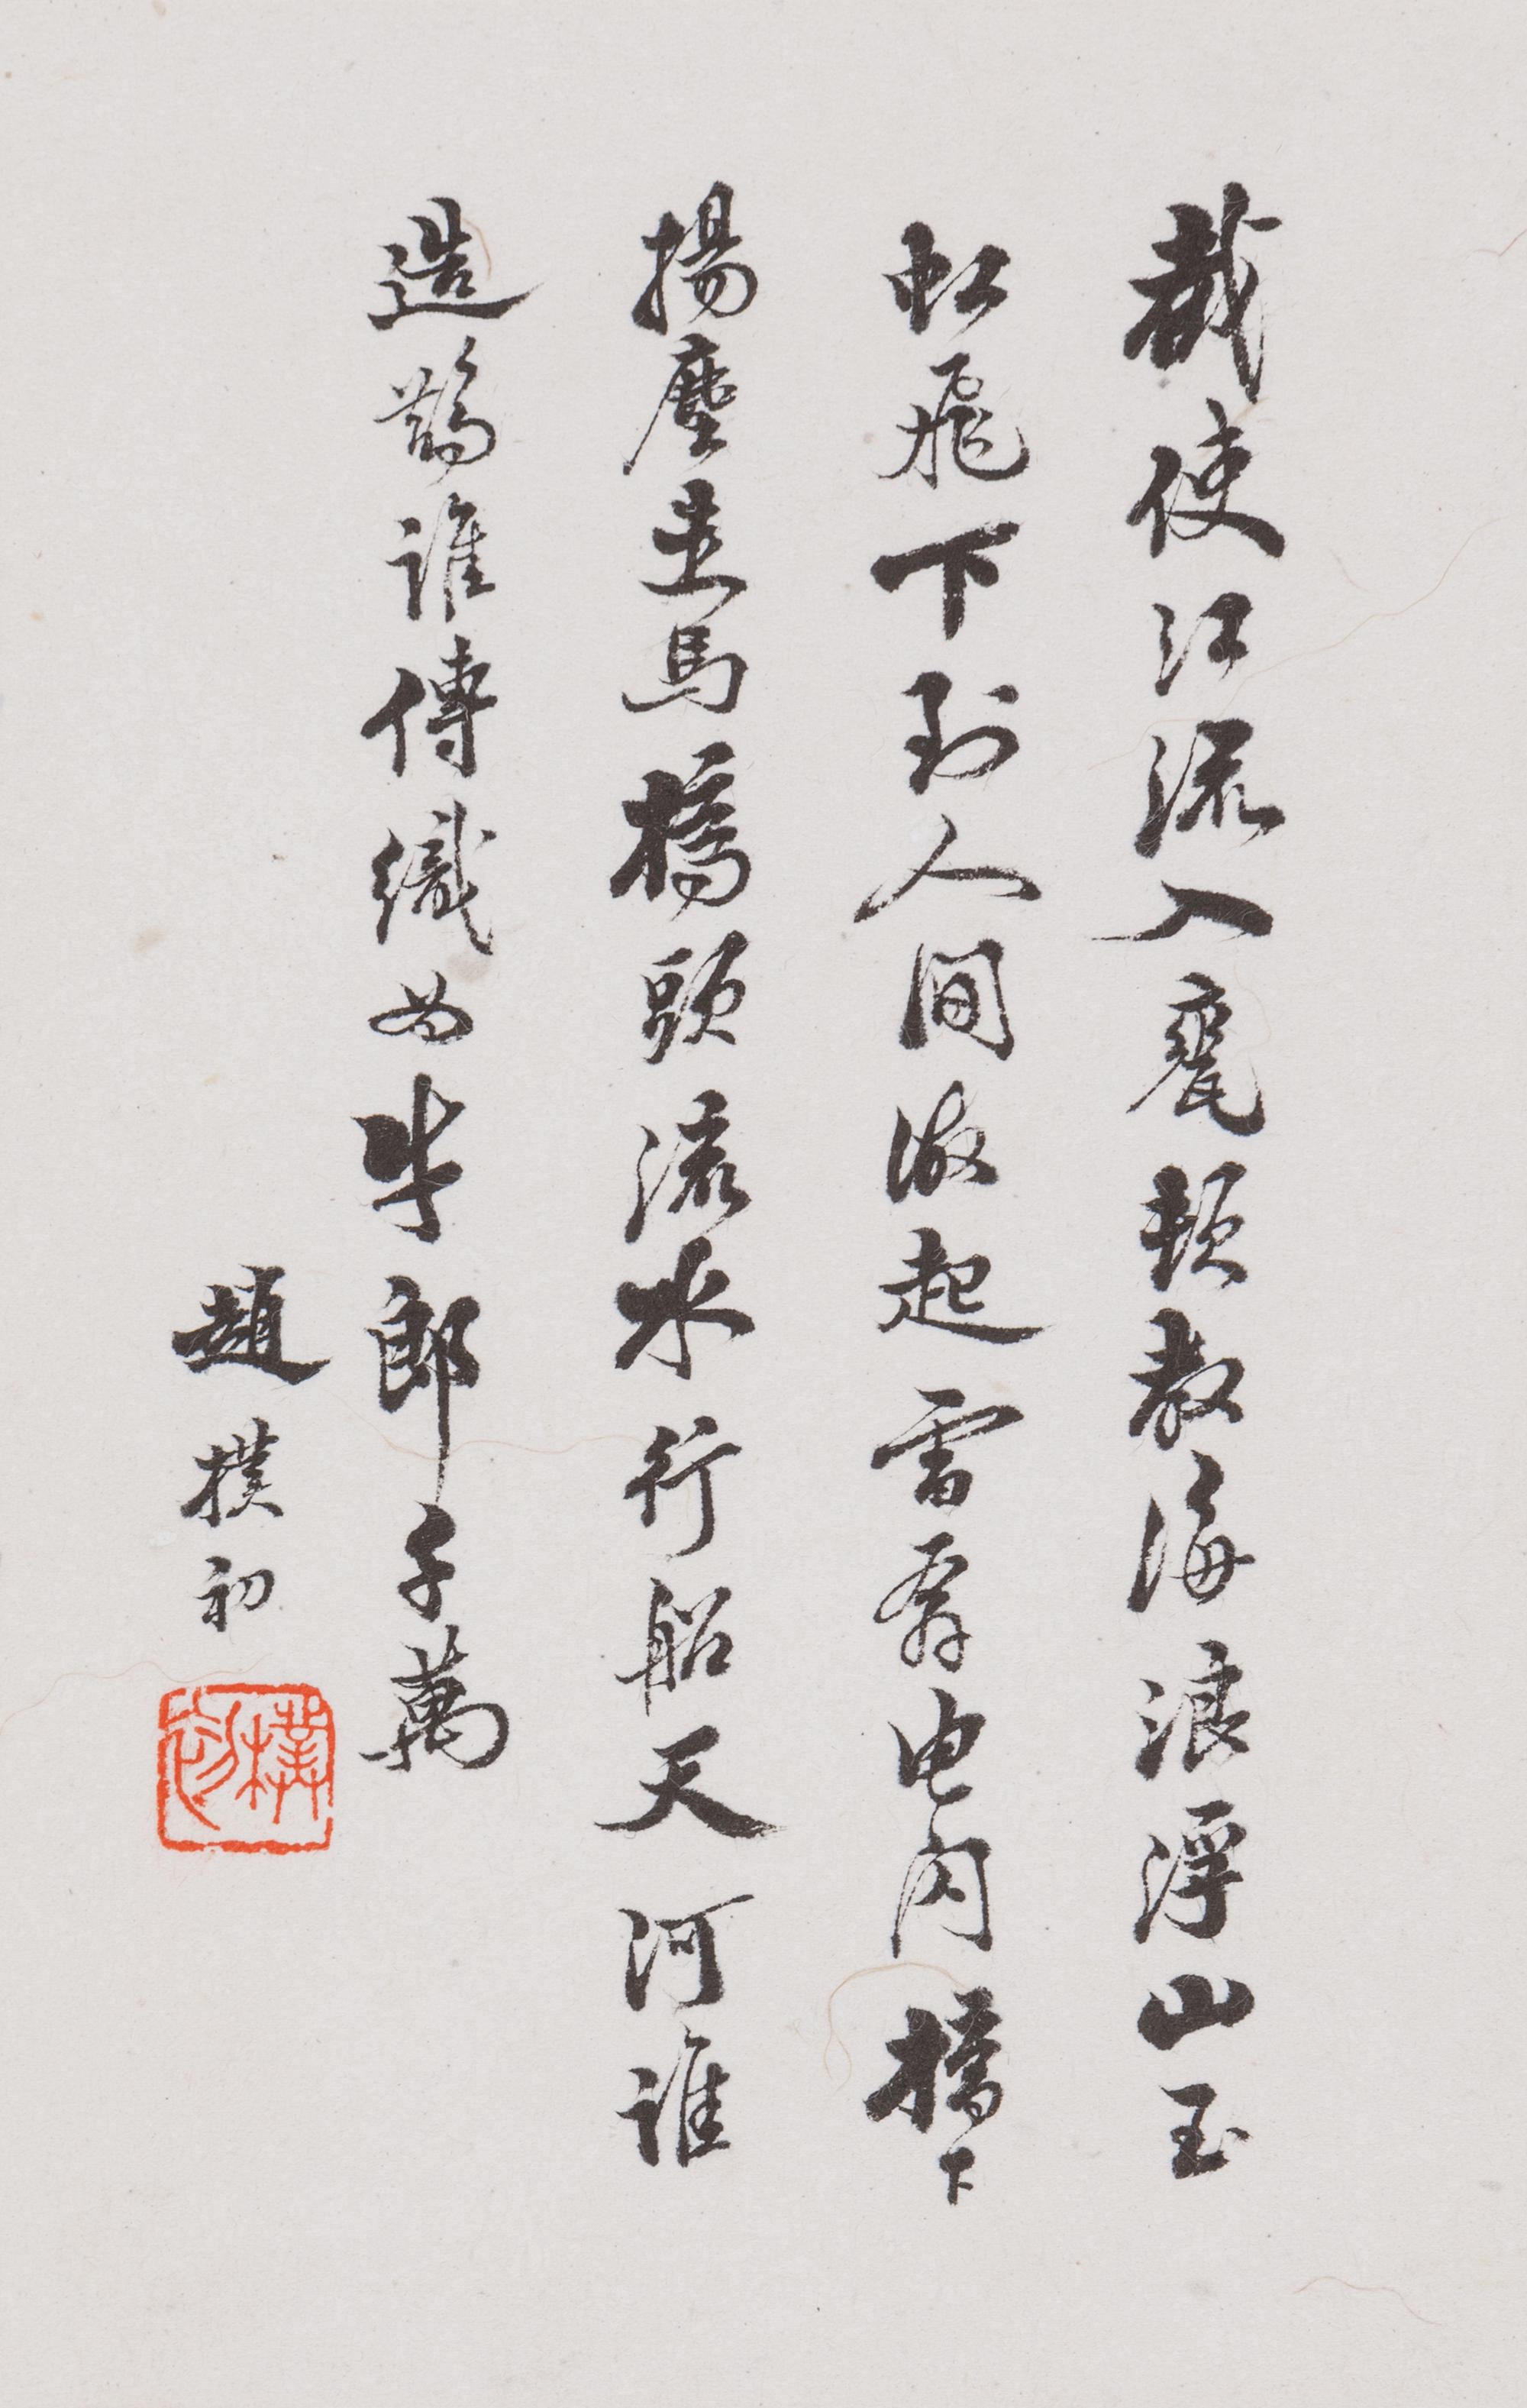 截使江流入甕頭教海浪浮山玉
虹飛下到人間激起雷奔电闪橋下
揚塵走馬橋頭流水行船天河誰
造鵲誰傳織女牛郎千萬
趙樸初
樸初